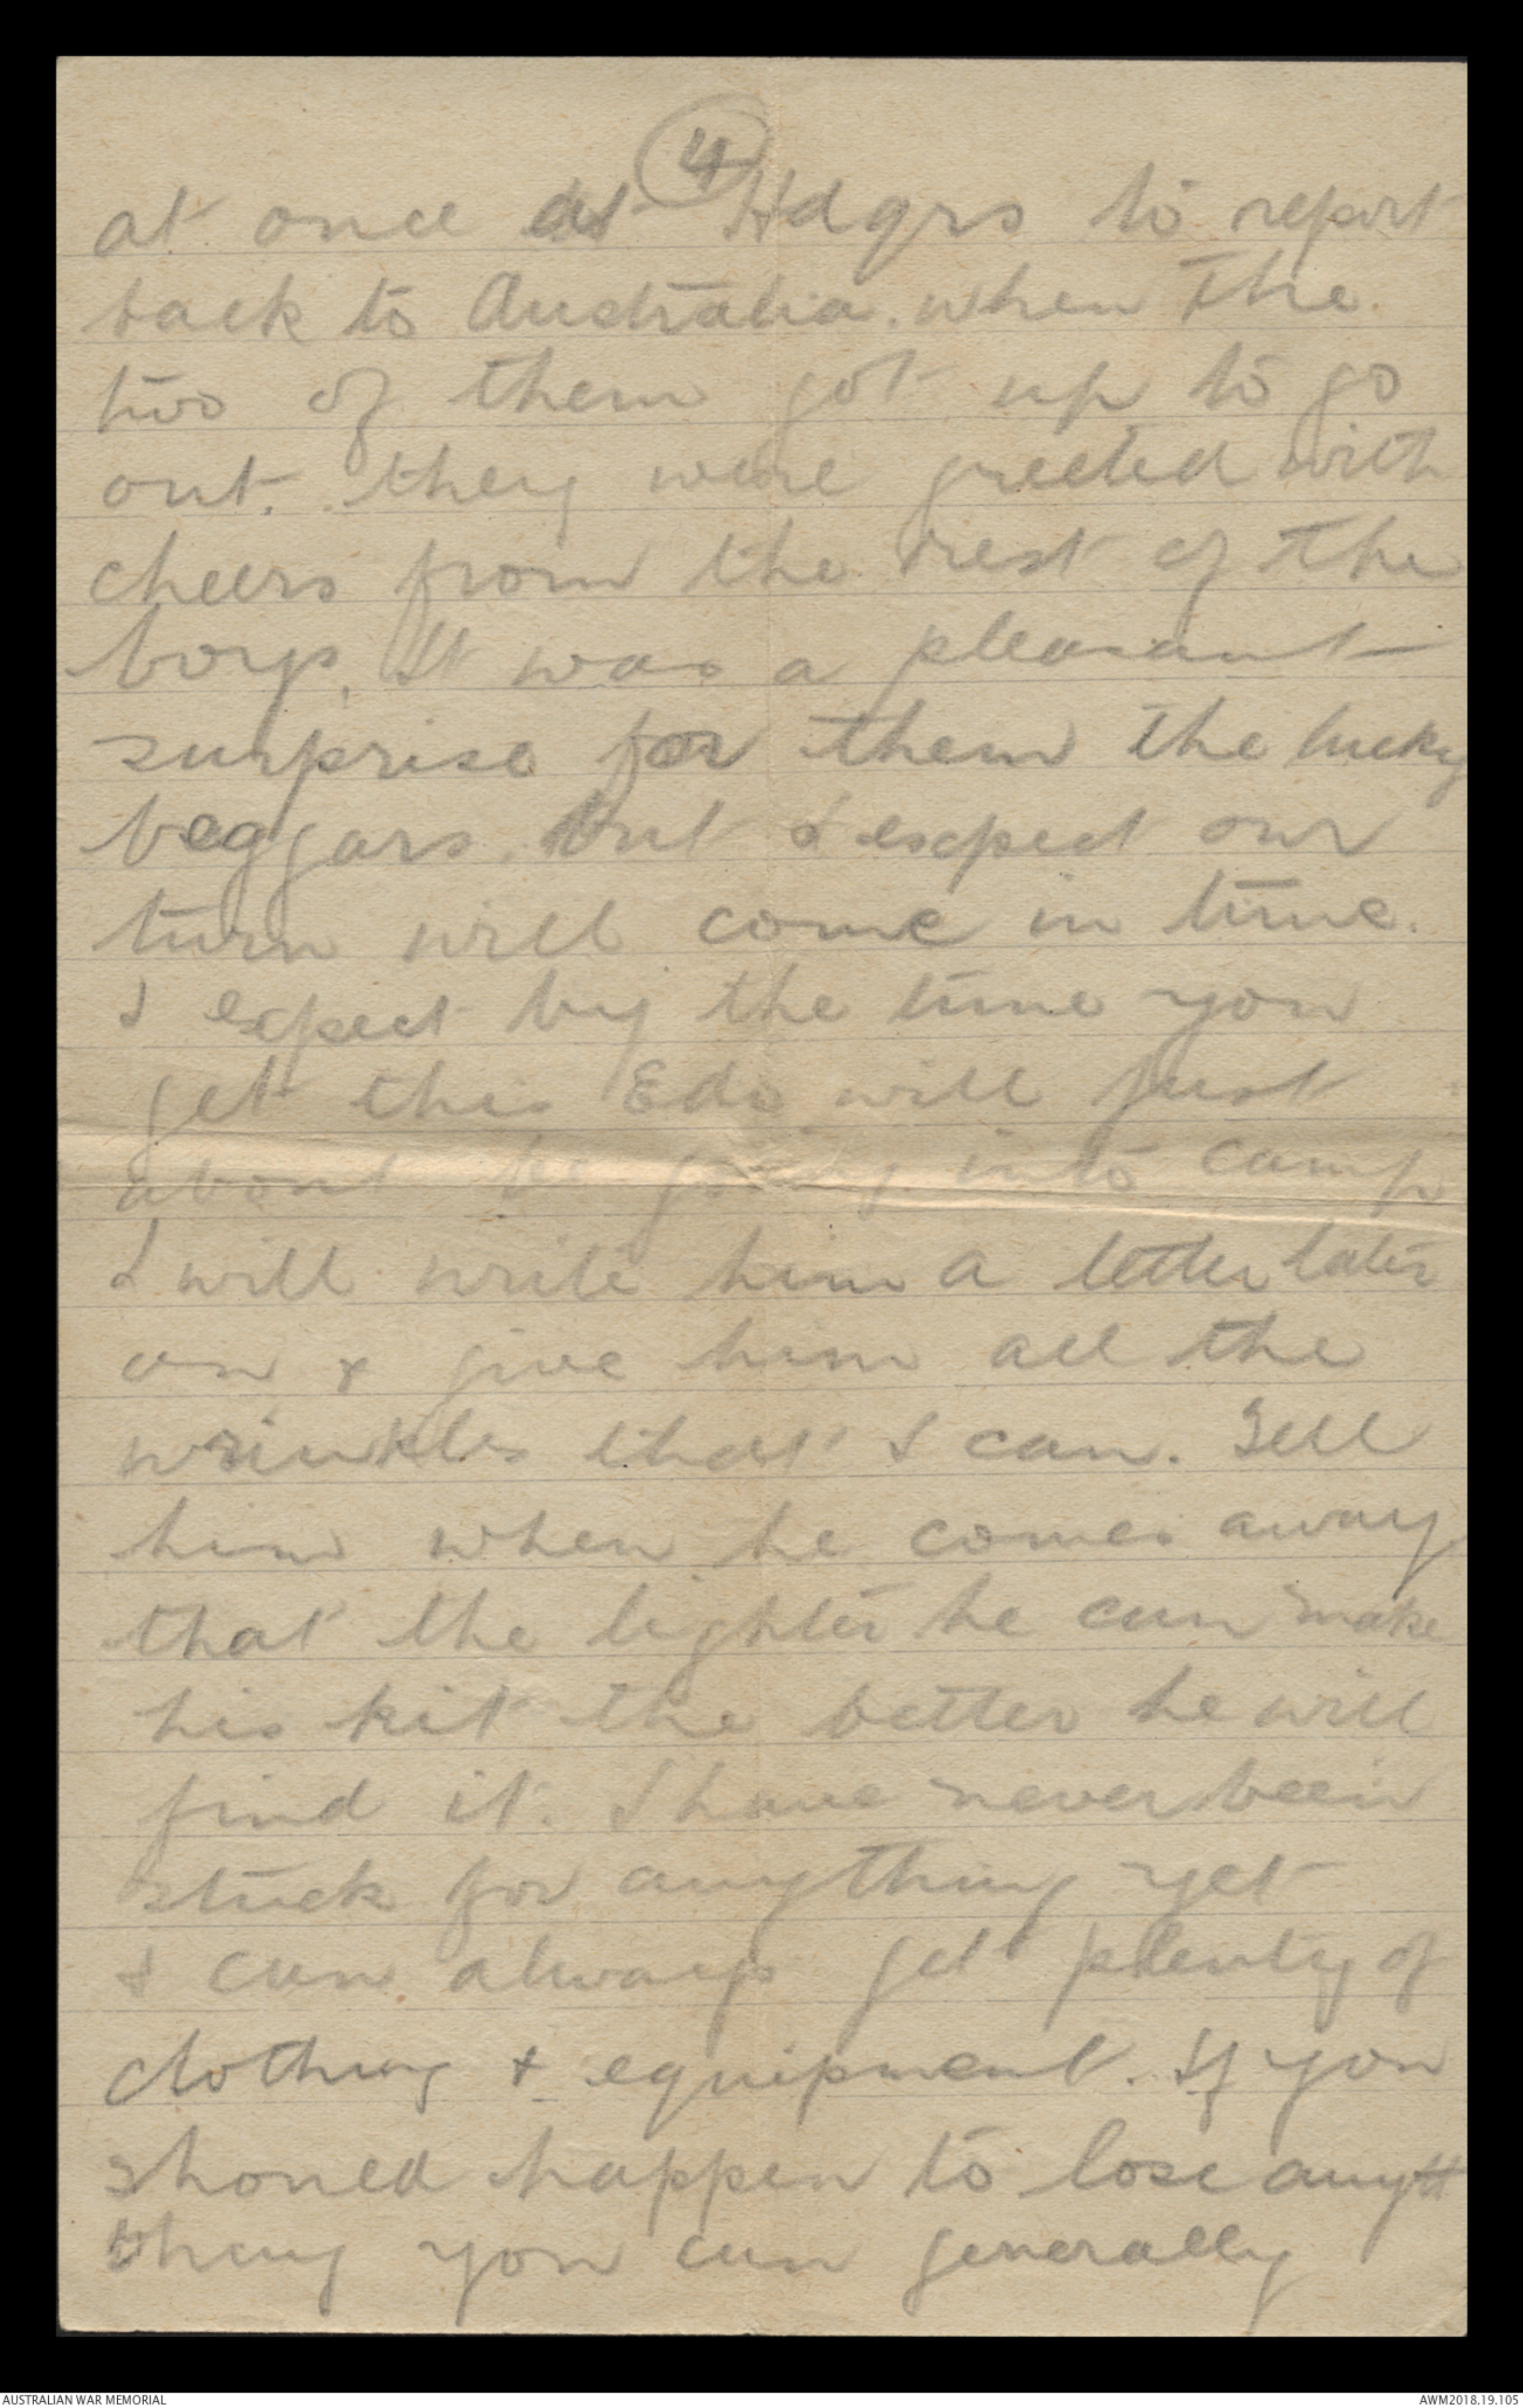 4
at once at Hdqrs to report
back to Australia. when the
two of them got up to go
out. they were greeted with
cheers from the rest of the
boys. It was a pleasant
surprise for them the lucky
beggars. But I expect our
turn will come in time.
I expect by the time you
get this Edo will just
about be going into camp
I will write him a letter later
on & give him all the
wrinkles that I can. Tell
him when he comes away
that the lighter he can make
his kit the better he will
find it. I have never been
stuck for anything yet
I can always get plenty of
clothing & equipment. If you
should happen to lose anyth
thing you can generally
AUSTRALIAN WAR MEMORIAL
AWM2018.19.105